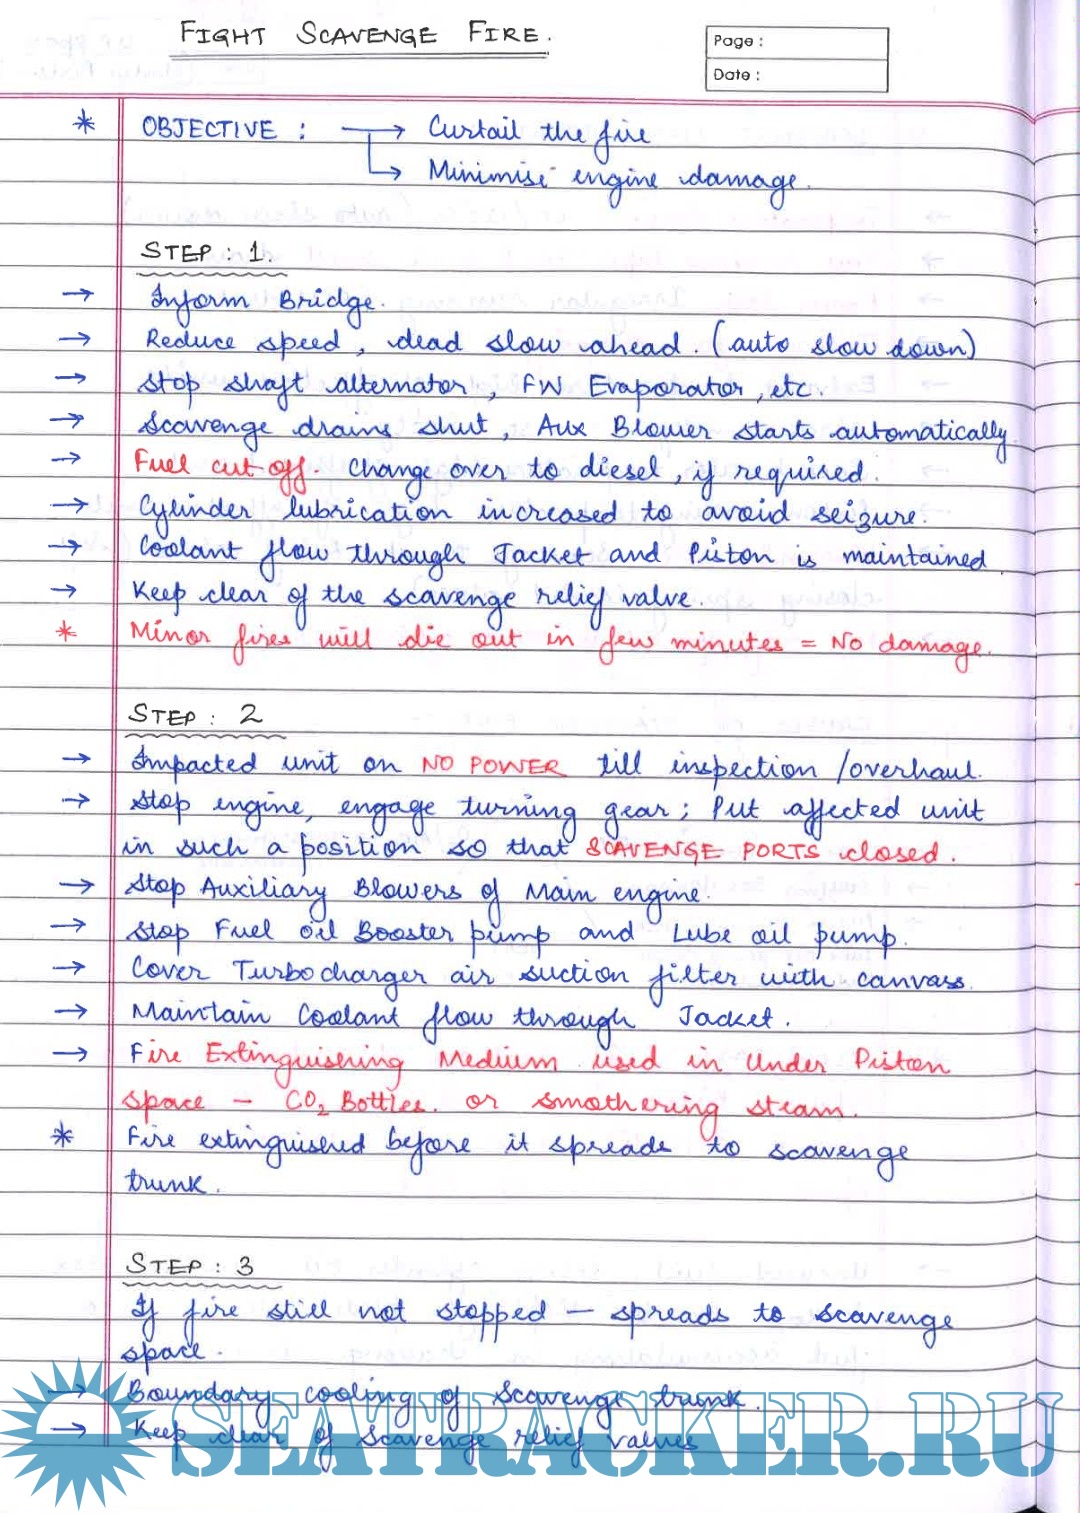 FIGHT SCAVENGE FIRE.
Page :
Date :
* OBJECTIVE : → Curtail the fire
↳ Minimise engine damage.
STEP : 1.
→ Inform Bridge.
→ Reduce speed, dead slow ahead. (auto slow down)
→ Stop shaft alternator, FW Evaporator, etc.
→ Scavenge drains shut, Aux Blower starts automatically.
→ Fuel cut off. Change over to diesel, if required.
→ Cylinder lubrication increased to avoid seizure.
→ Coolant flow through Jacket and Piston is maintained.
→ Keep clear of the scavenge relief valve.
* Minor fires will die out in few minutes = No damage.
STEP : 2
→ Impacted unit on NO POWER till inspection /overhaul.
→ Stop engine, engage turning gear; Put affected unit
in such a position so that SCAVENGE PORTS closed.
→ Stop Auxiliary Blowers of Main engine.
→ Stop Fuel oil Booster pump and Lube oil pump.
→ Cover Turbocharger air suction filter with canvass.
→ Maintain Coolant flow through Jacket.
→ Fire Extinguishing Medium used in Under Piston
space — CO₂ Bottles. or smothering steam.
* Fire extinguished before it spreads to scavenge
trunk.
STEP : 3
If fire still not stopped — spreads to scavenge
space.
→ Boundary cooling of Scavenge trunk.
→ Keep clear of Scavenge relief valves
SEATRACKER.RU